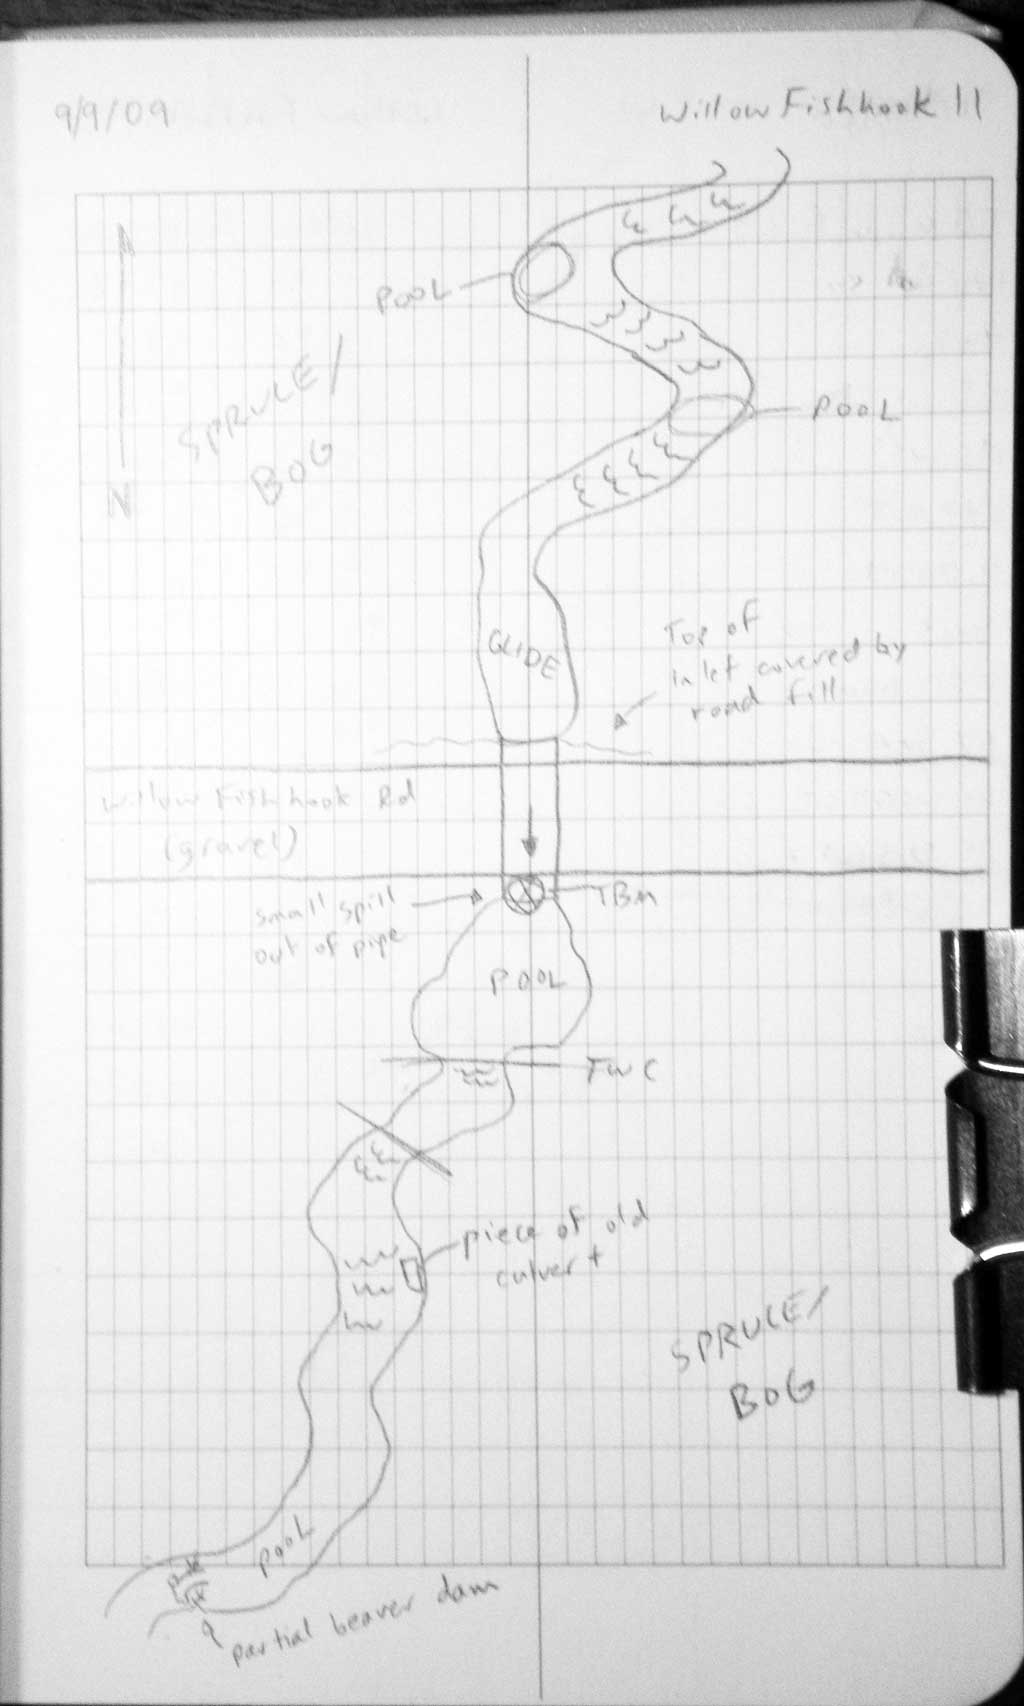 9/9/09
Willow Fishhook 11
POOL
SPRUCE/
BOG
POOL
N
GLIDE
Top of
inlet covered by
road fill
Willow Fishhook Rd
(gravel)
small spill
out of pipe
TBM
POOL
TWC
piece of old
culvert
SPRUCE/
BOG
POOL
partial beaver dam